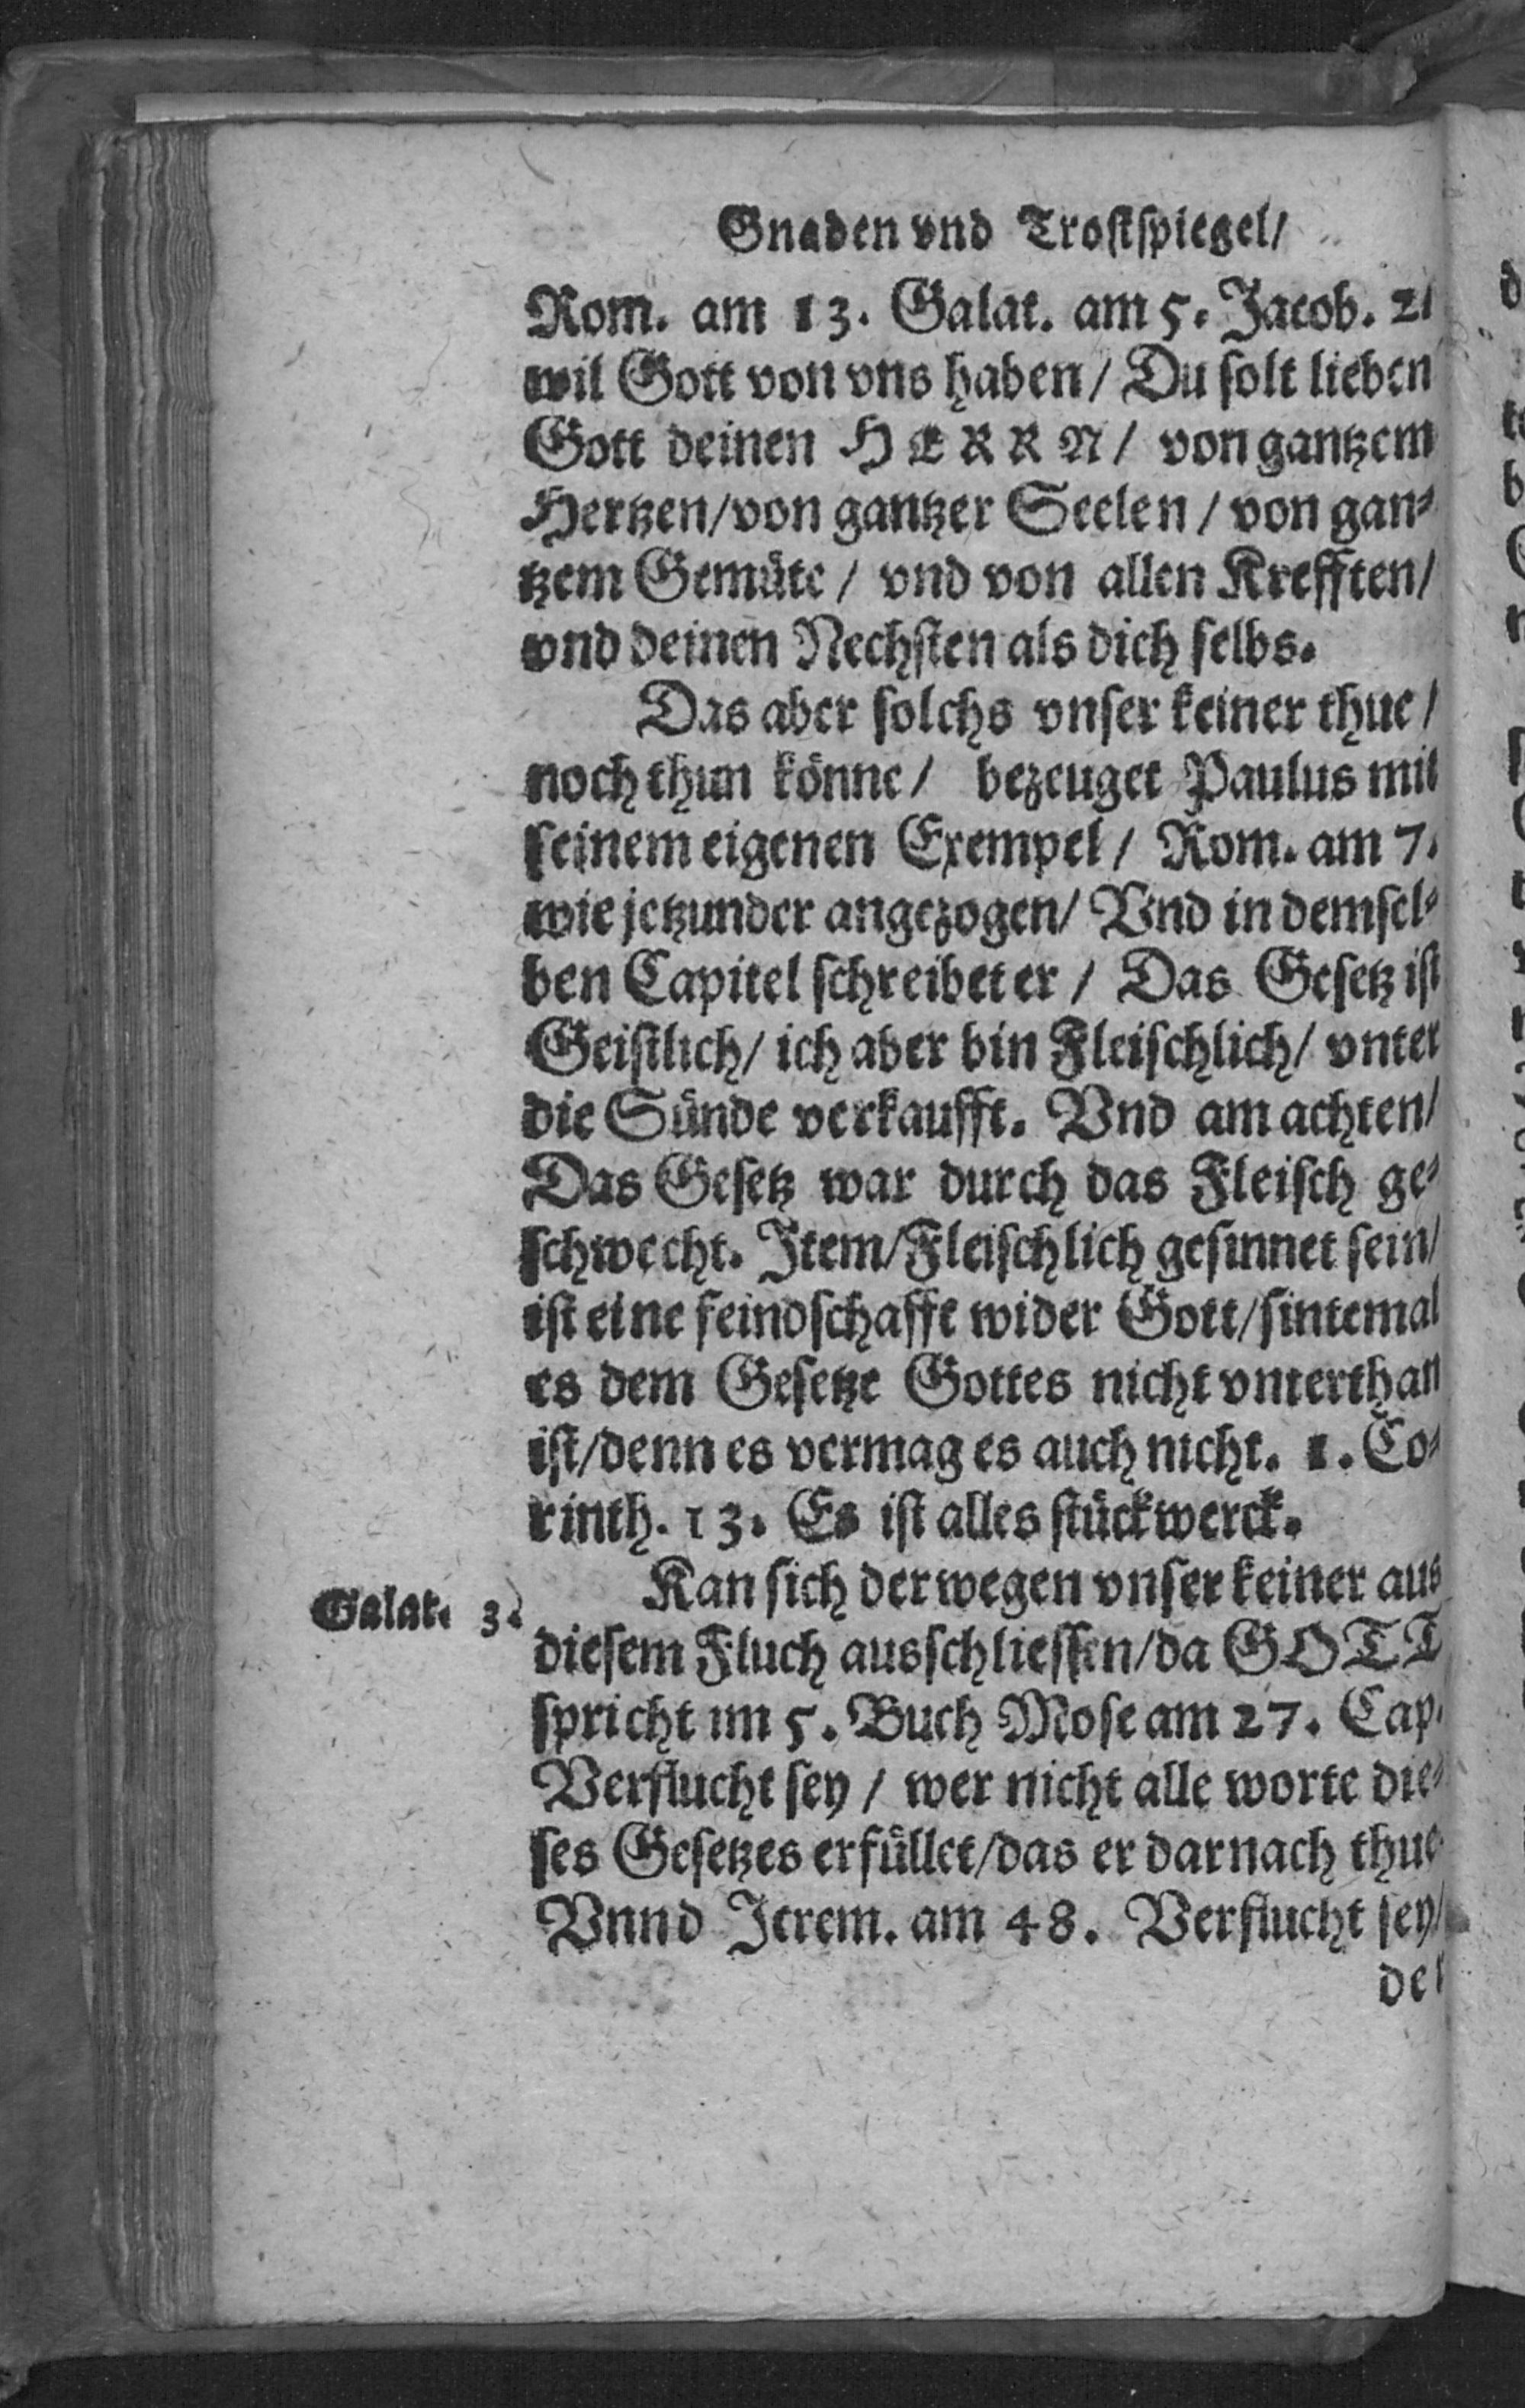 Gnaden vnd Trostspiegel/
Rom. am 13. Galat. am 5. Jacob. 2/
wil Gott von vns haben/ Du solt lieben
Gott deinen HERRN/ von gantzem
Hertzen/von gantzer Seelen/ von gan⸗
tzem Gemüte/ vnd von allen Krefften/
vnd deinen Nechsten als dich selbs.
Das aber solchs vnser keiner thue/
noch thun könne/ bezeuget Paulus mit
seinem eigenen Exempel/ Rom. am 7.
wie jetzunder angezogen/ Vnd in demsel⸗
ben Capitel schreibet er/ Das Gesetz ist
Geistlich/ ich aber bin Fleischlich/ vnter
die Sünde verkaufft. Vnd am achten/
Das Gesetz war durch das Fleisch ge⸗
schwecht. Item/Fleischlich gesinnet sein/
ist eine feindschafft wider Gott/sintemal
es dem Gesetze Gottes nicht vnterthan
ist/denn es vermag es auch nicht. 1. Co⸗
rinth. 13. Es ist alles stückwerck.
Kan sich derwegen vnser keiner aus
Galat. 3.
diesem Fluch ausschliessen/da GOTT
spricht im 5. Buch Mose am 27. Cap.
Verflucht sey/ wer nicht alle worte die⸗
ses Gesetzes erfüllet/das er darnach thue
Vnnd Jerem. am 48. Verflucht sey/
der